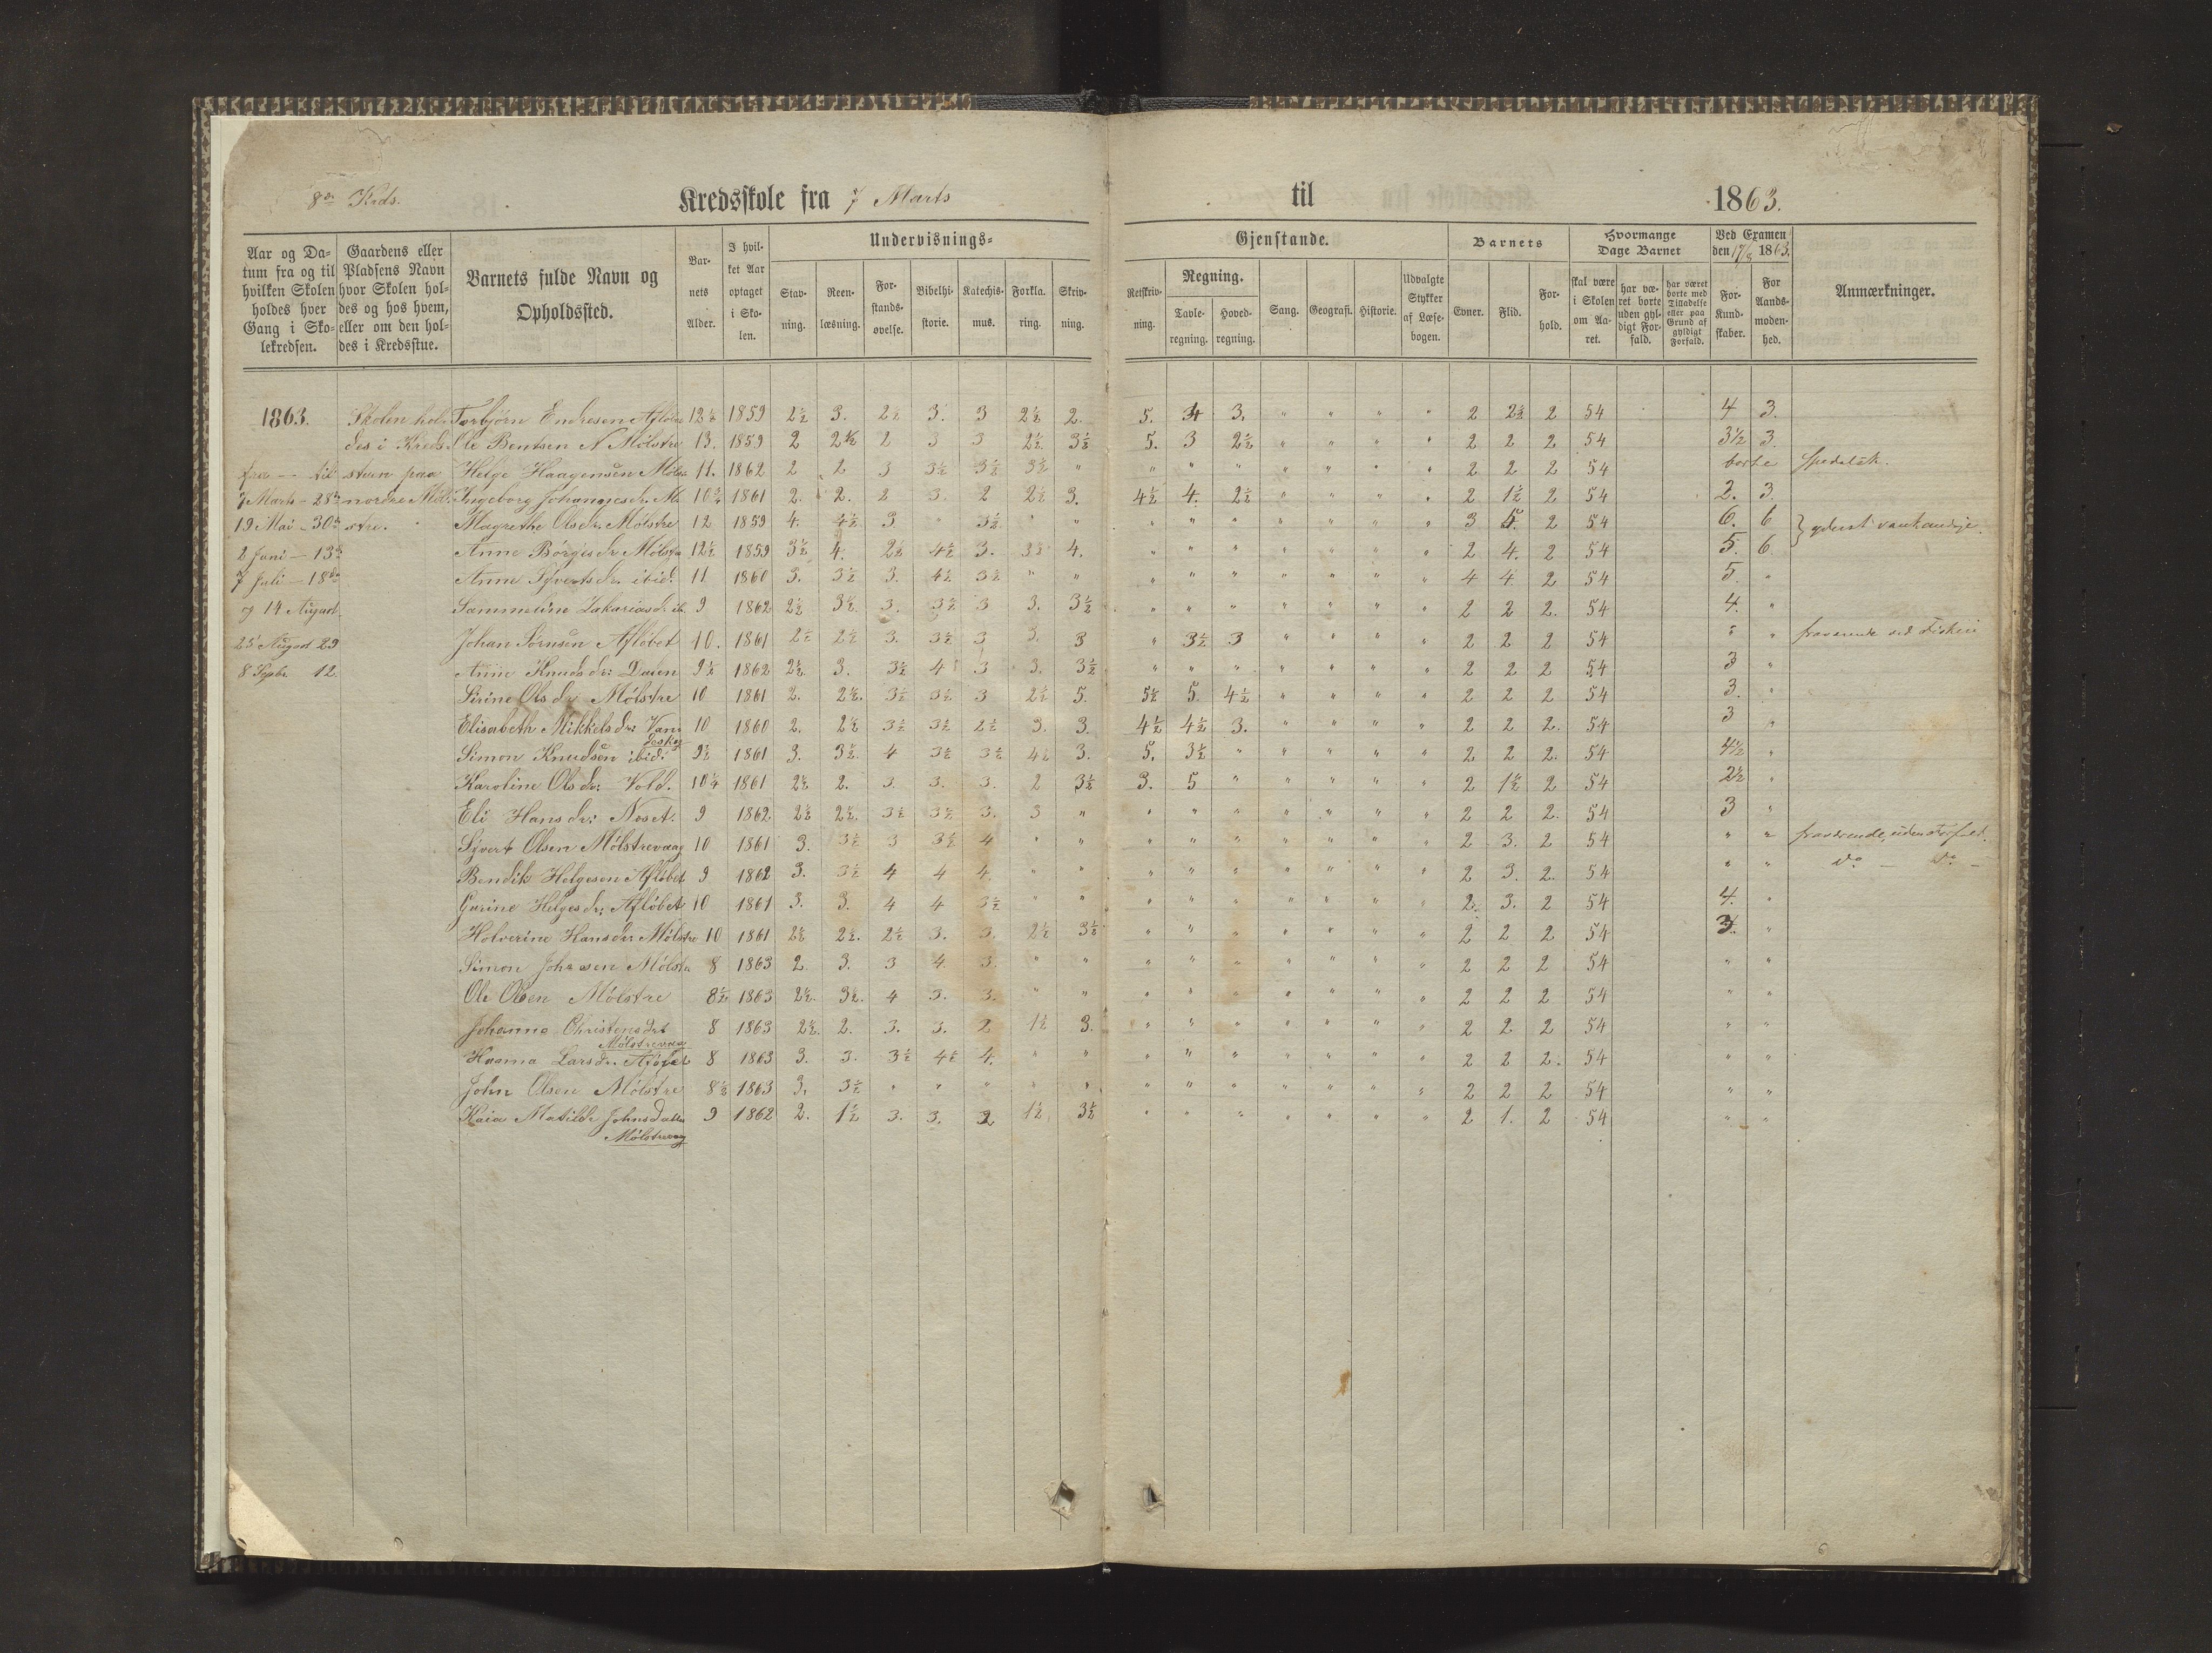 8de Krds. Kredsskole fra 7 Marts til 1863.
Aar og Datum fra og til hvilken Skolen holdes hver Gang i Skolekredsen.
Gaardens eller Pladsens Navn hvor Skolen holdes og hos hvem, eller om den holdes i Kredsstue.
Barnets fulde Navn og Opholdssted.
Barnets Alder.
I hvilket Aar optaget i Skolen.
Undervisnings= Gjenstande.
Stavning. Reenlæsning. Forstandsøvelse. Bibelhistorie. Katechismus. Forklaring. Skrivning.
Retskrivning. Regning. Tavleregning. Hovedregning. Sang. Geografi. Historie. Udvalgte Stykker af Læsebogen.
Barnets Evner. Flid. Forhold.
Hvormange Dage Barnet skal være i Skolen om Aaret. har været borte uden gyldigt Forfald. har været borte med Tilladelse eller paa Grund af gyldigt Forfald.
Ved Examen den 17/8 1863. For Kundskaber. For Aandsmodenhed.
Anmærkninger.
1863. Skolen hol- Torbjørn Endresen Afløbet 12½ 1859 2½ 3. 2½ 3. 3 2½ 2. 5. 3. " " " " 2 2½ 2 54 4 3.
des i Kreds- Ole Bentsen N Mølstre 13. 1859 2 2½ 2 3 3 2½ 3½ 5. 3 2½ " " " " 2 2 2 54 3½ 3.
fra — til stuen paa Helge Haagensen Mølst 11. 1862 2 2 3 3½ 3½ 3½ " " " " " " " " 2 2 2 54 borte spedalsk.
7 Marts - 28de nordre Møl- Ingeborg Johannesdr. 10¾ 1861 2. 2. 2 3. 2 2½ 3. 4½ 4. 2½ " " " " 2 1½ 2 54 2. 3.
19 Mai - 30te stre. Magrethe Olsdr. Mølstre 12 1859 4. 4½ 3. " 3½ " " " " " " " " " 3 5. 2 54 6. 6 } yderst vankundige.
2 Juni — 13de Anne Børgesdr Mølstre 12½ 1859 3½ 4. 2½ 4½ 3. 3½ 4. " " " " " " " 2 4. 2 54 5. 6
7 Juli — 18de Anne Syvertsdr. ibid. 11 1860 3. 3½ 3. 4½ 3½ " " " " " " " " " 4 4 2 54 5. "
og 14 August. Sammeline Zakariasdr. ib 9 1862 2½ 3½ 3. 3½ 3 3. 3½ " " " " " " " 2 2 2. 54 4. "
25 August 29 Johan Sørnsen Afløbet 10. 1861 2½ 2½ 3. 3½ 3 3. 3 " 3½ 3 " " " " 2 2 2 54 " " fraværende ved Fiskeri
8 Septbr 12. Anne Knudsdr: Dalen 9½ 1862 2½ 3. 3½ 4 3 3. 3½ " " " " " " " 2 2 2 54 3 "
Sirine Olsdr Mølstre 10 1861 2. 2½. 3½ 3½ 3 2½ 5. 5½ 5. 4½ " " " " 2 2 2 54 3. "
Elisabeth Mikkelsdr: Van- 10 1860 2. 2½ 3½ 3½ 2½ 3. 3. 4½ 4½ 3. " " " " 2 2 2. 54 3 "
Simon Knudsen ibid: 9½ 1861 3. 3½ 4 3½ 3½ 4½ 3. 5. 3½ " " " " " 2 2 2. 54 4½ "
Karoline Olsdr: Vold. 10¼ 1861 2½ 2. 3. 3. 3. 2 3½ 3. 5 " " " " " 2 1½ 2 54 2½ "
Eli Hansdr: Neset. 9 1862. 2½ 2½. 3½ 3½ 3. 3 " " " " " " " " 2 2 2. 54 3 "
Syvert Olsen Mølstrevaag 10 1861 3. 3½ 3 3½ 4 " " " " " " " " " 2 3. 2 54 " " fraværende, uden Forfald.
Bendik Helgesen Afløbet 9 1862 3. 3½ 4 4 4. " " " " " " " " " 2 3. 2. 54 " " do — do —
Gurine Helgesdr: Afløbet 10 1861 3. 3. 4 4 3½ " " " " " " " " " 2. 3. 2 54 4. "
Holverine Hansdr Mølstre 10 1861 2½ 2½. 2½ 3. 3. 2½ 3½ " " " " " " " 2 2 2 54 3. "
Simon Johnsen Mølstre 8 1863 2. 3. 3 4. 3. " " " " " " " " " 2 2 2 54 " "
Ole Olsen Mølstre 8½ 1863 2½. 3½. 4 3. 3. " " " " " " " " " 2 2 2 54 " "
Johanna Christensdat 8 1863 2½. 2. 3. 3. 2 1½ 3. " " " " " " " 2 2. 2 54 " "
Mølstrevaag
Larsdr. Afløbet 8 1863 3. 3. 3½ 4½ 4. " " " " " " " " " 2 2 2. 54 " "
John Olsen Mølstre 8½ 1863 3. 3½ " " " " " " " " " " " " 2 2 2 54 " "
Kaia Matilde Johnsdatter 9 1862 2. 1½ 3. 3. 2 1½ 3½ " " " " " " " 2 1. 2 54 " "
Mølstrevaag